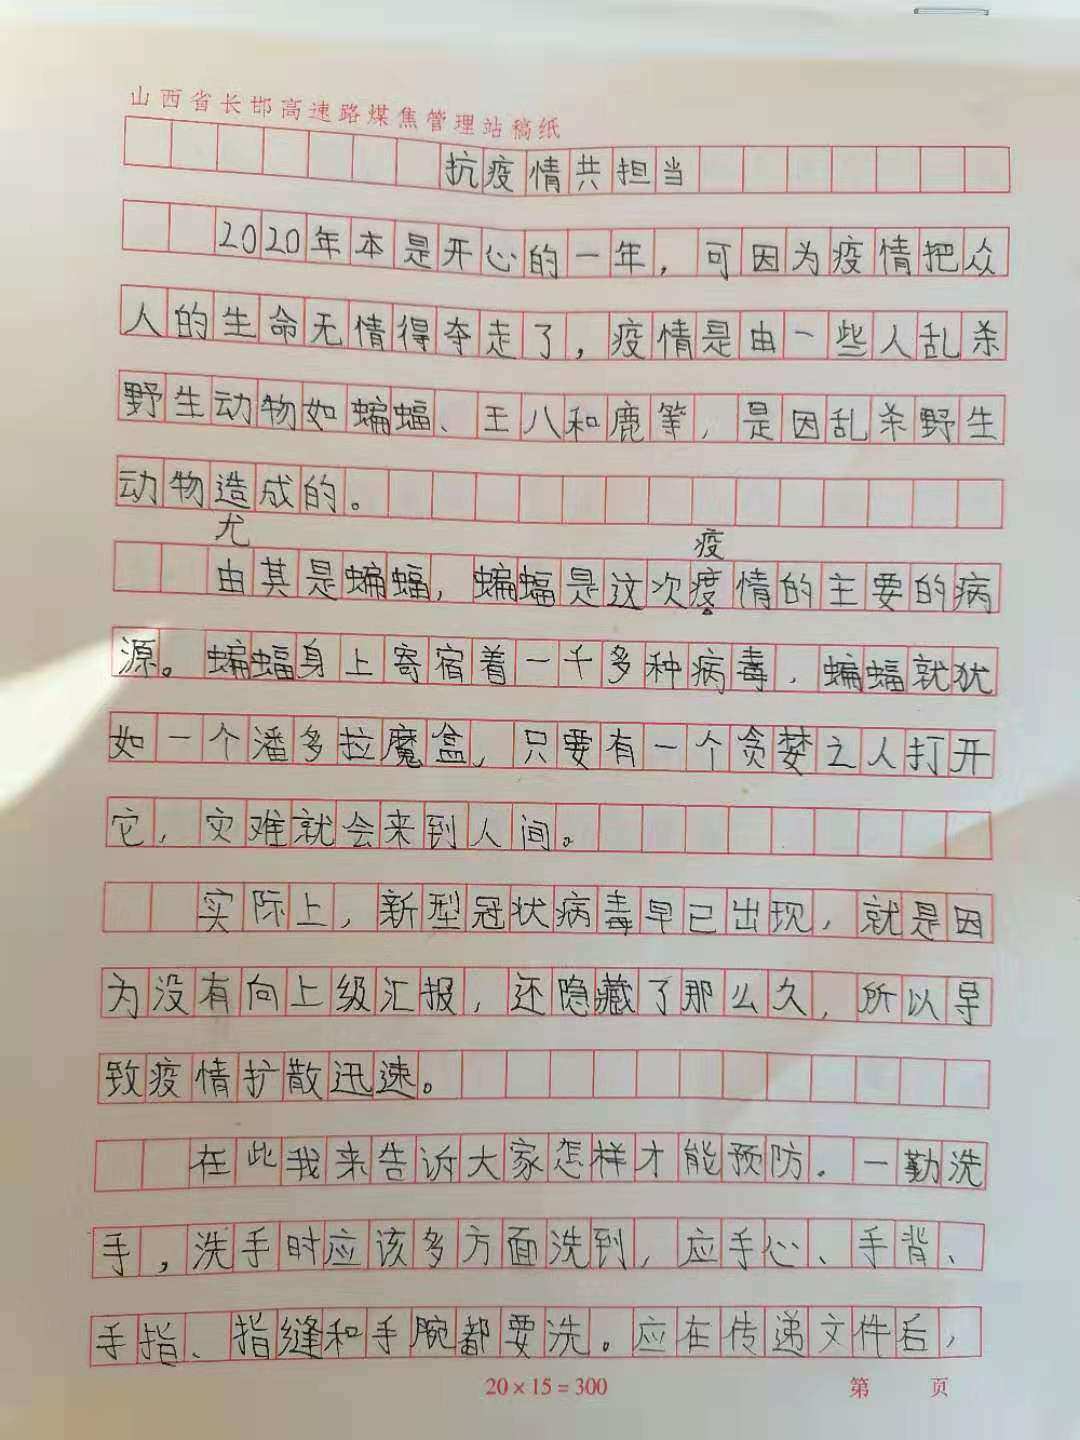 山西省长邯高速路煤焦管理站稿纸
抗疫情共担当
2020年本是开心的一年，可因为疫情把众
人的生命无情得夺走了，疫情是由一些人乱杀
野生动物如蝙蝠、王八和鹿等，是因乱杀野生
动物造成的。
尤
疫
由其是蝙蝠，蝙蝠是这次疫情的主要的病
源。蝙蝠身上寄宿着一千多种病毒，蝙蝠就犹
如一个潘多拉魔盒，只要有一个贪婪之人打开
它，灾难就会来到人间。
实际上，新型冠状病毒早已出现，就是因
为没有向上级汇报，还隐藏了那么久，所以导
致疫情扩散迅速。
在此我来告诉大家怎样才能预防．一勤洗
手，洗手时应该多方面洗到，应手心、手背、
手指、指缝和手腕都要洗。应在传递文件后，
20×15=300
第 页